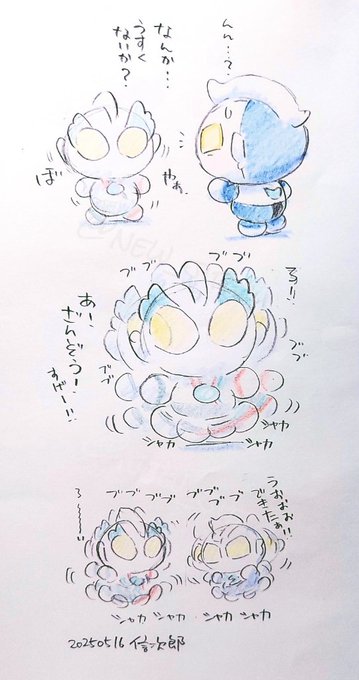 んん…?
なんか…
うすく
ないか?
ぼ
やぁ
NEW
ブブ
ブブ
ろ!!
あー、
ざんぞうー!
すげー!!
ブブ
ブブ
シャカ
シャカ
シャカ
シャカ
うおおお
できたぁ!!
ブブ ブブ
ブブ ブブ
ろ〜〜!!
シャカ シャカ シャカ シャカ
20250516 信次郎